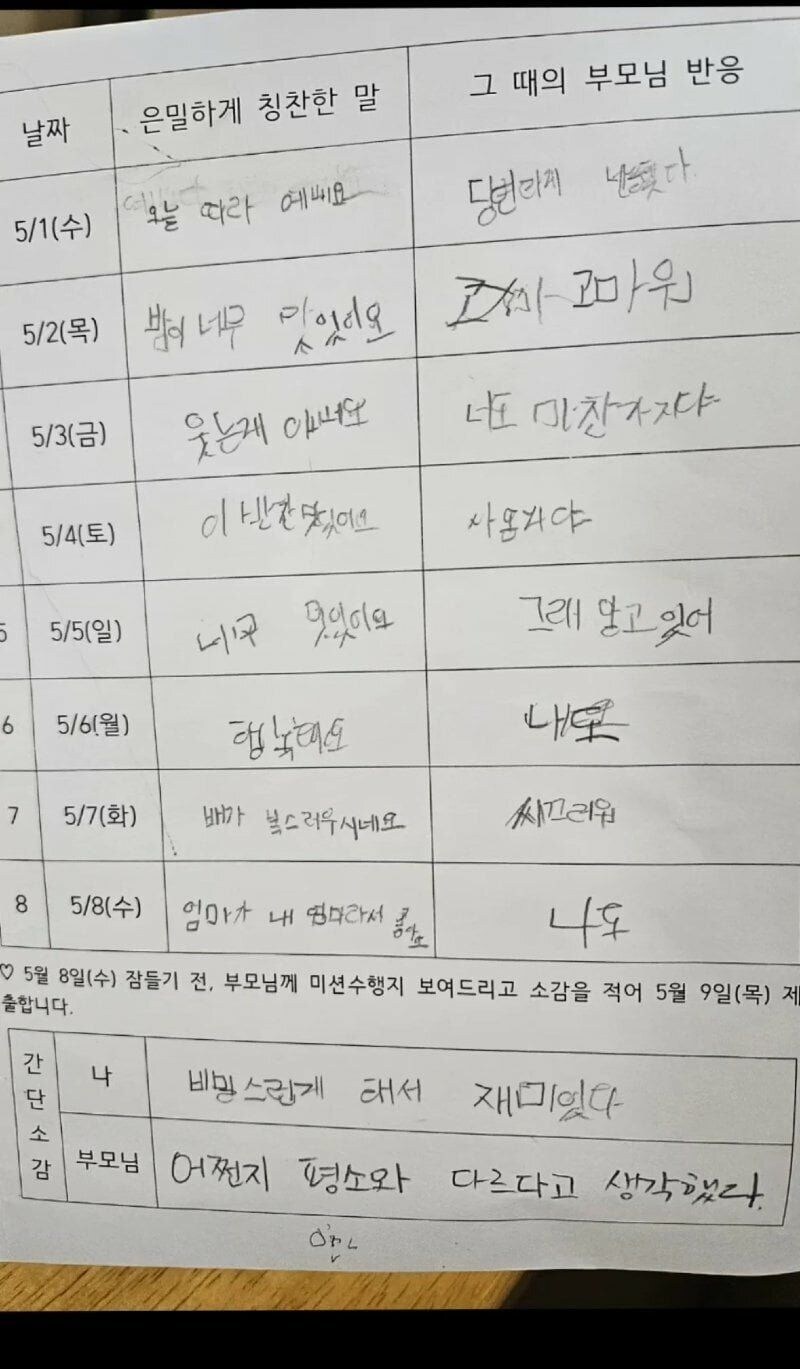 날짜 은밀하게 칭찬한 말 그 때의 부모님 반응
5/1(수) 오늘 따라 예뻐요
5/2(목) 밥이 너무 맛있어요 고마워
5/3(금) 웃는게 너도 마찬가지야
5/4(토) 이 반찬 맛있어요
5/5(일) 너무 멋있어요 그래 알고 있어
6 5/6(월) 행복해요 나도
7 5/7(화) 배가 복스러우시네요 씨끄러워
8 5/8(수) 엄마가 내 엄마라서 좋아요 나도
♡ 5월 8일(수) 잠들기 전, 부모님께 미션수행지 보여드리고 소감을 적어 5월 9일(목) 제
출합니다.
간단소감
나 재미있다
부모님 어쩐지 평소와 다르다고 생각했다.